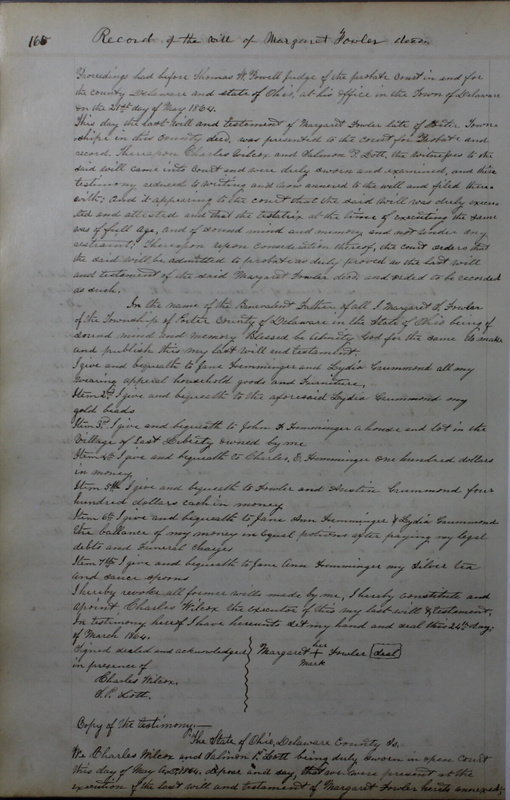 168 Record of the will of Margaret Fowler decsn
Proceedings had before Thomas W. Powell judge of the probate Court in and for
the county Delaware and state of Ohio, at his office in the Town of Delaware
on the 20th day of May 1864.
This day the last will and testament of Margaret Fowler late of Porter Town-
ship in this County decd, was presented to the court for Probate and
record. Thereupon Charles Wilcox, and Salmon P. Lott, the witnesses to the
said will came into Court and were duly sworn and examined, and their
testimony reduced to writing and now annexed to the will and filed there
with: and it appearing to the court that the said will was duly execu
ted and attested and that the testatrix at the time of executing the same
was of full age, and of sound mind and memory and not under any
restraint; Thereupon upon consideration thereof, the court orders that
the said will be admitted to probate as duly proved as the last will
and testament of the said Margaret Fowler decd. and orded to be recorded
as such.
In the name of the Benevolent Father of all I Margaret S. Fowler
of the Township of Porter County of Delaware in the State of Ohio being of
sound mind and memory Blessed be Almity God for the same do make
and publish this my last will and testament.
I give and bequeath to Jane Hemminger and Lydia Crummond all my
wearing apperal household goods and Furniture.
Item 2d I give and bequeath to the aforesaid Lydia Crummond my
gold beads
Item 3d I give and bequeath to John F Hemminger a house and lot in the
Village of East Liberty owned by me
Item 4th I give and bequeath to Charles. E Hemminger One hundred dollars
in money
Item 5th I give and bequeath to Fowler and Austin Crummond four
hundred dollars cash in money
Item 6th I give and bequeath to Jane Ann Hemminger & Lydia Crummond
the ballance of my money in Equal potions after paying my legal
debts and Funeral charges
Item 7th I give and bequeath to Jane Ann Hemminger my silver tea
and sauce spoons
I hereby revoke all former wills made by me, I hereby constitute and
apoint Charles Wilcox the executor of this my last will & testament.
In testimony hereof I have hereunto set my hand and seal this 24th day
of March 1864.
Signed sealed and acknowledged
in presence of
Charles Wilcox.
S.P. Lott.
Margaret her + mark Fowler seal
Copy of the testimony.
The State of Ohio, Delaware County Ss.
We Charles Wilcox and Salmon P. Lott being duly sworn in open court
this day of May A.D. 1864. depose and say, that we were present at the
execution of the last will and testament of Margaret Fowler hereto annexed;